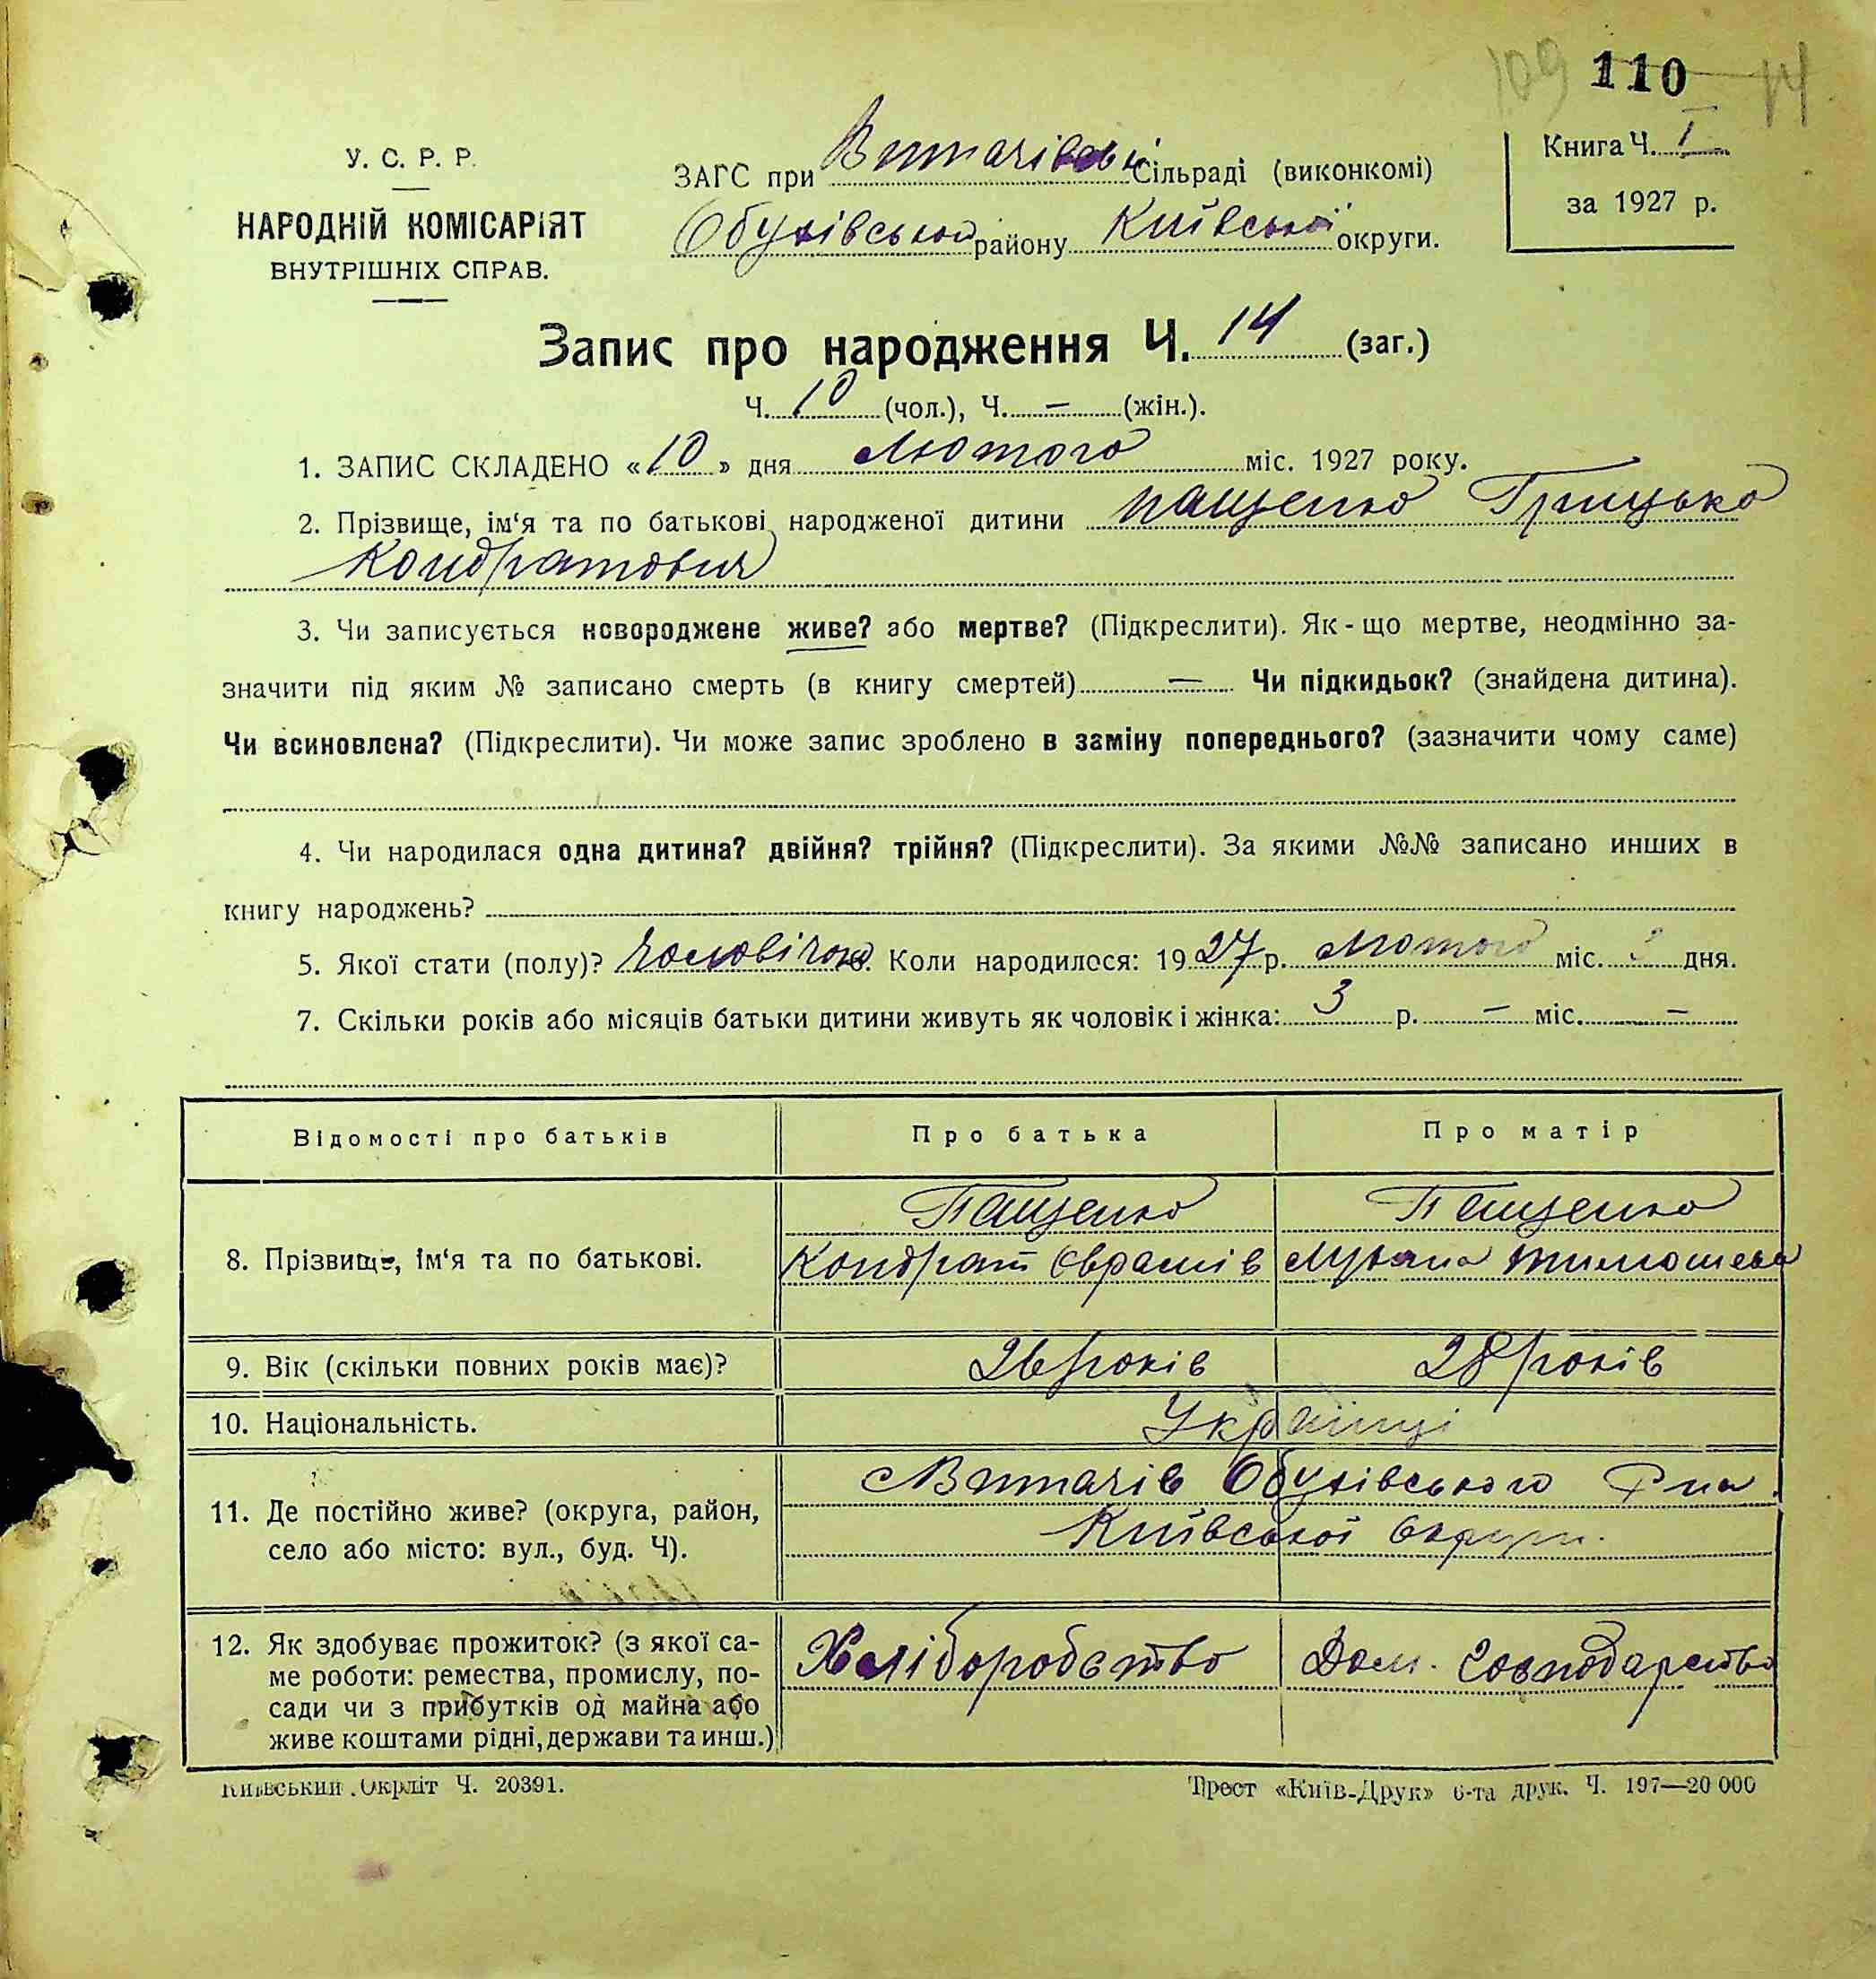 109 110 14
У. С. Р. Р.
НАРОДНІЙ КОМІСАРІЯТ
ВНУТРІШНІХ СПРАВ.
ЗАГС при Витачівськ Сільраді (виконкомі)
Обухівського району Київської округи.
Книга Ч. I
за 1927 р.
Запис про народження Ч. 14 (заг.)
Ч. 10 (чол.), Ч. — (жін.).
1. ЗАПИС СКЛАДЕНО «10» дня Лютого міс. 1927 року.
2. Прізвище, ім‘я та по батькові народженої дитини Пащенко Грицько
Кондратович
3. Чи записується новороджене живе? або мертве? (Підкреслити). Як-що мертве, неодмінно за-
значити під яким № записано смерть (в книгу смертей) — Чи підкидьок? (знайдена дитина).
Чи всиновлена? (Підкреслити). Чи може запис зроблено в заміну попереднього? (зазначити чому саме)
4. Чи народилася одна дитина? двійня? трійня? (Підкреслити). За якими №№ записано инших в
книгу народжень?
5. Якої стати (полу)? Чоловічої Коли народилося: 1927 р. Лютого міс. 3 дня.
7. Скільки років або місяців батьки дитини живуть як чоловік і жінка: 3 р. — міс. —
Відомості про батьків Про батька Про матір
8. Прізвище, ім‘я та по батькові. Пащенко Пащенко
Кондрат Оврамів Тимошева
9. Вік (скільки повних років має)? 26 років 28 років
10. Національність. Українці
11. Де постійно живе? (округа, район,
село або місто: вул., буд. Ч).
с Витачів Обухівського Р на
Київської Округи.
12. Як здобуває прожиток? (з якої са-
ме роботи: ремества, промислу, по-
сади чи з прибутків од майна або
живе коштами рідні, держави та инш.)
Хліборобство Дом. Господарство
Київський Окрліт Ч. 20391.
Трест «Київ-Друк» 6-та друк. Ч. 197—20 000